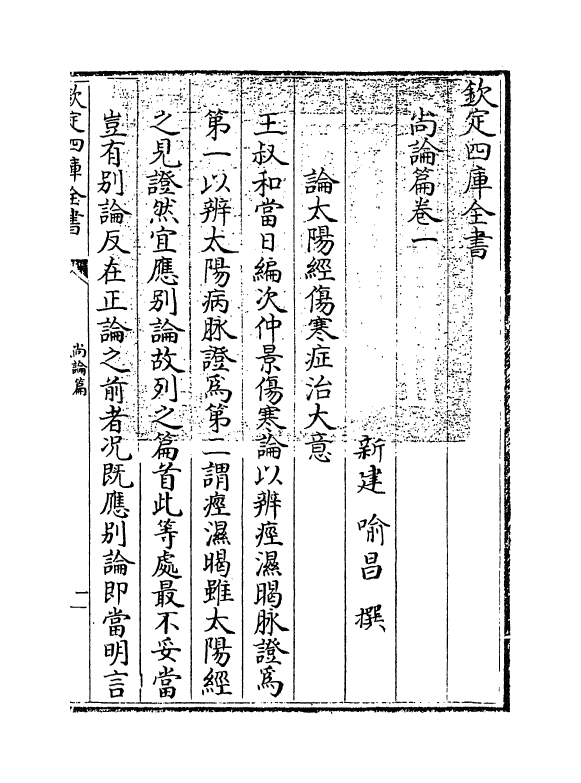 欽定四庫全書
尚論篇卷一
新建 喻昌 撰
論太陽經傷寒症治大意
王叔和當日編次仲景傷寒論以辨痙濕暍脉證為
第一以辨太陽病脉證為第二謂痙濕暍雖太陽經
之見證然宜應别論故列之篇首此等處最不妥當
豈有别論反在正論之前者况既應别論即當明言
欽定四庫全書
尚論篇
二